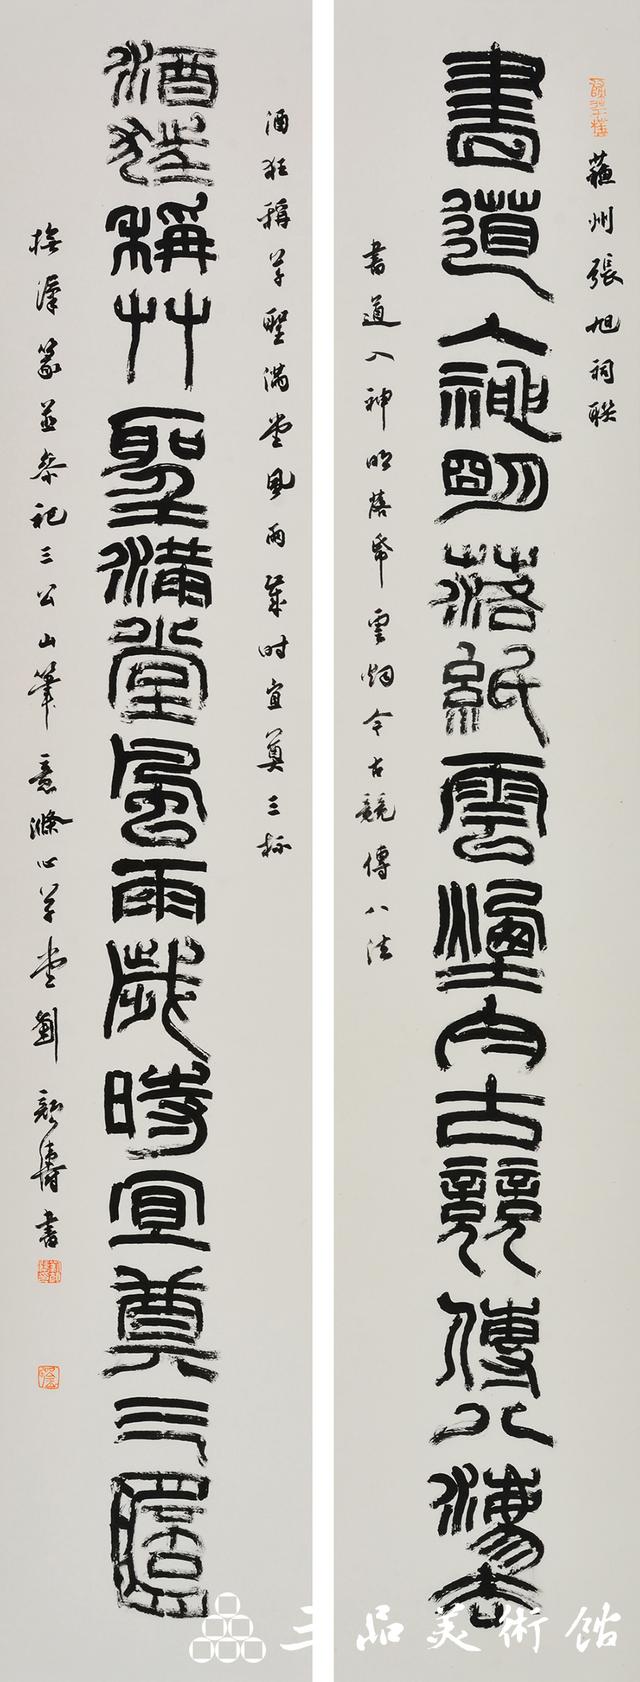 蘓州張旭祠聯
書道入神明落紙雲煙今古競傳八法
書道入神明落帋雲烟今古競傳八法
酒狂稱草聖滿堂風雨歲时宜奠三杯
酒狂稱艸聖滿堂風雨歲時宜奠三杯
撫漢篆並參祀三公山筆意滌心草堂劉顏濤書
三品美術館